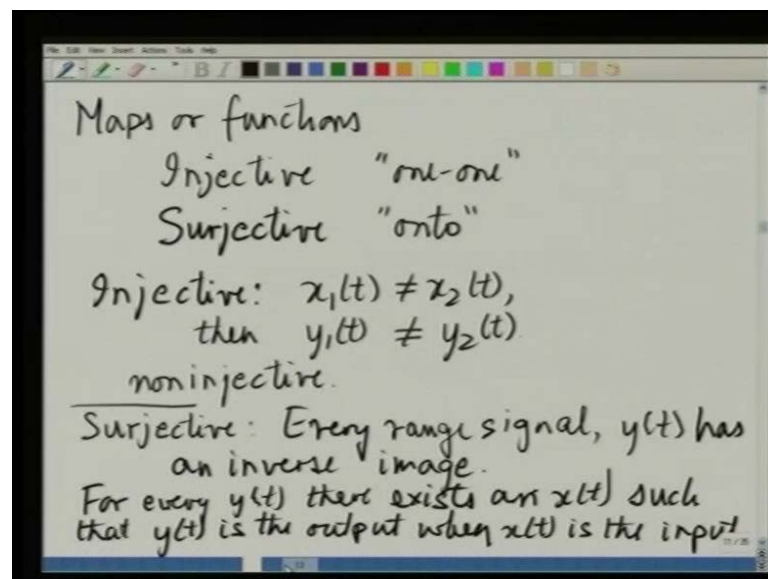 File Edit View Insert Actions Tools Help
B I
Maps or functions
Injective "one-one"
Surjective "onto"
Injective: x₁(t) ≠ x₂(t),
then y₁(t) ≠ y₂(t)
noninjective.
Surjective: Every range signal, y(t) has
an inverse image.
For every y(t) there exists an x(t) such
that y(t) is the output when x(t) is the input